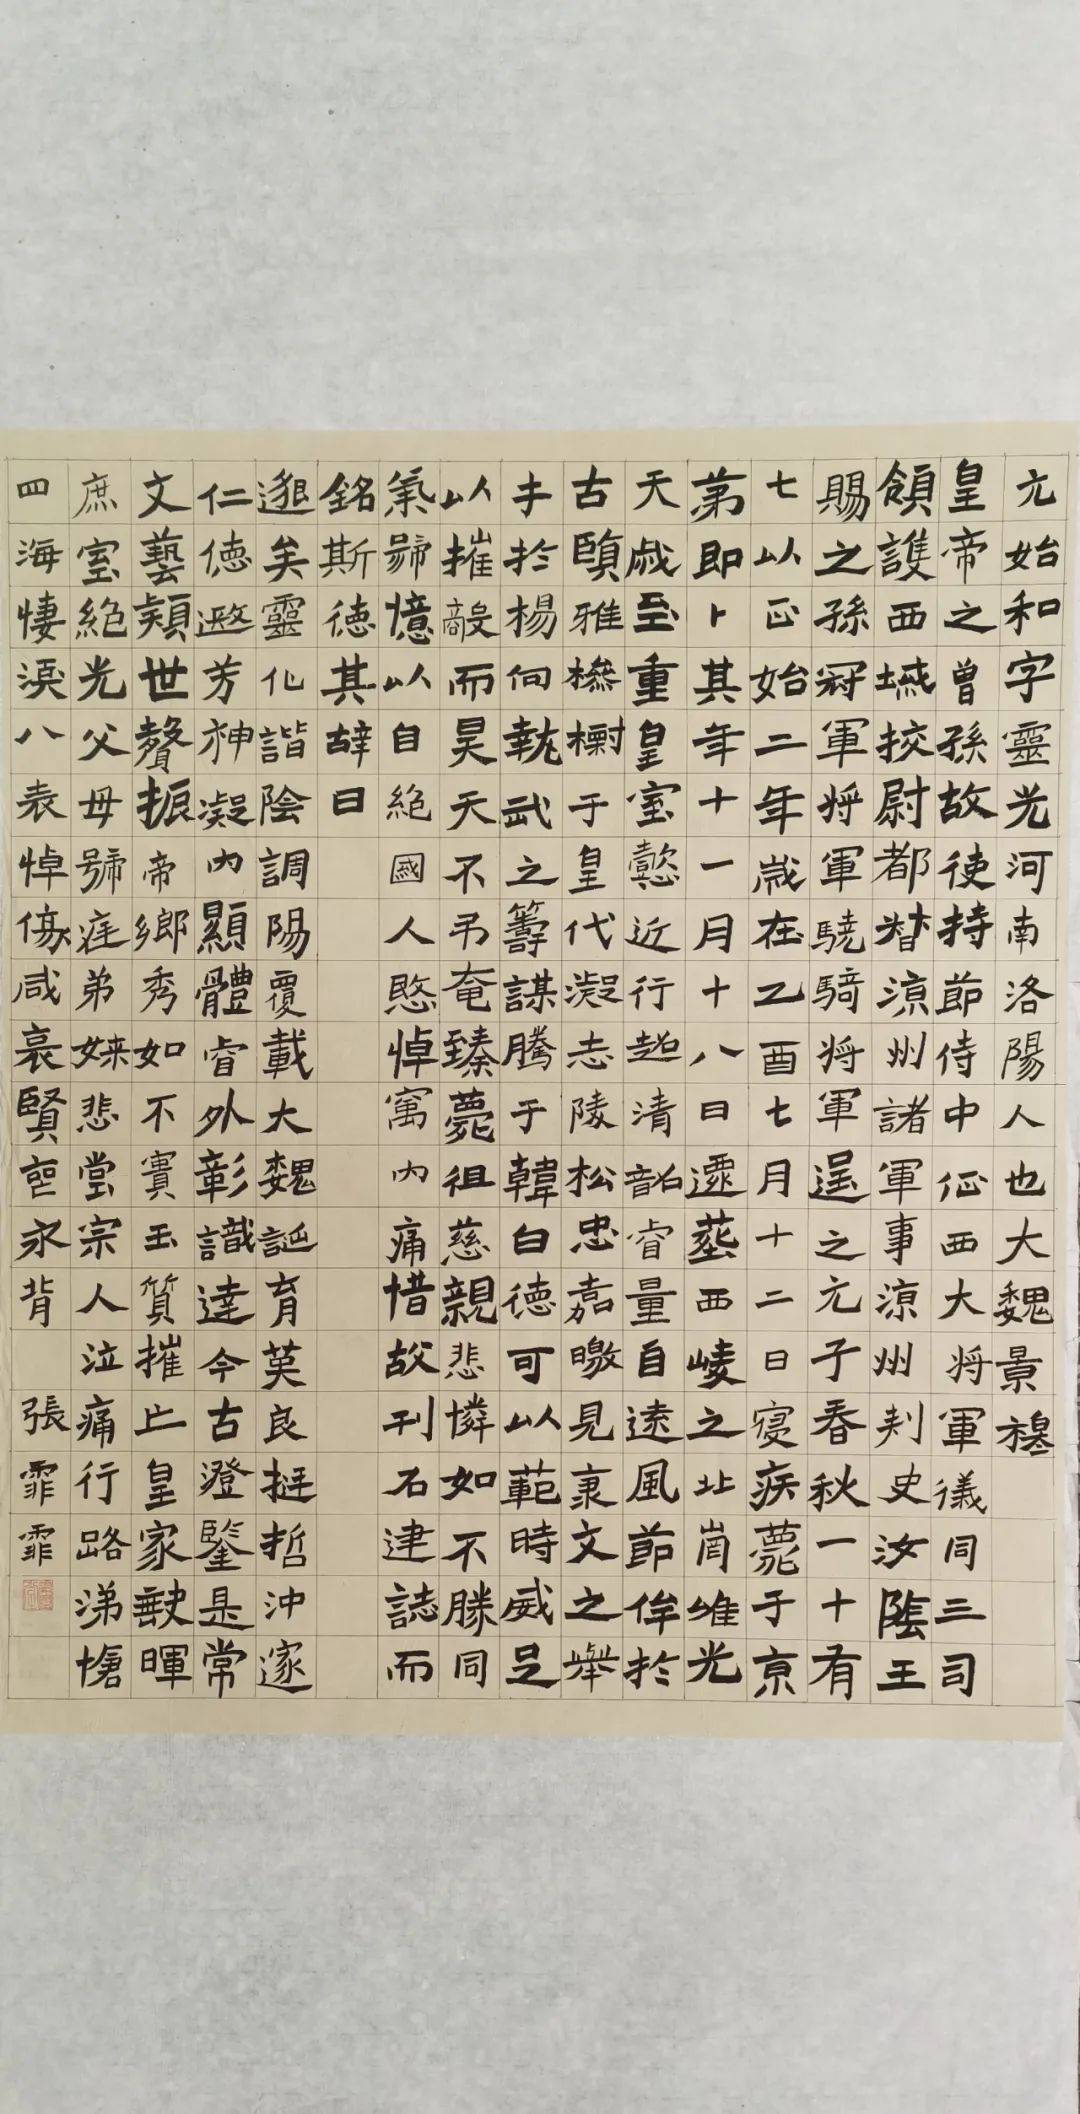 元始和字靈光河南洛陽人也大魏景穆
皇帝之曾孫故使持節侍中征西大將軍儀同三司
領護西域挍尉都督涼州諸軍事涼州刾史汝陰王
賜之孫冠軍將軍驍騎將軍逞之元子春秋一十有
七以正始二年歲在乙酉七月十二日寑疾薨于京
苐即卜其年十一月十八日遷葬西崚之北崗唯光
天戚至重皇室懿近行超清韶睿量自遠風節侔於
古賾雅槮樹于皇代凝志陵松忠嘉曒見秉文之舉
才於楊向執武之籌謀騰于韓白德可以範時威足
以摧敵而昊天不弔奄臻薨徂慈親悲憐如不勝同
氣號憶以自絕國人愍悼㝢內痛惜故刊石建誌而
銘斯德其辞曰
邈矣靈化諧陰調陽覆載大魏誕育英良挺哲沖邃
仁德邀芳神凝內顯體睿外彰識達今古澄鑒是常
文藝穎世贇振帝鄉秀如不實玉質摧亡皇家缺暉
庶室絕光父母號㾏弟妹悲當宗人泣痛行路涕愴
四海悽淚八表悼傷咸哀賢喪永背
張霏霏